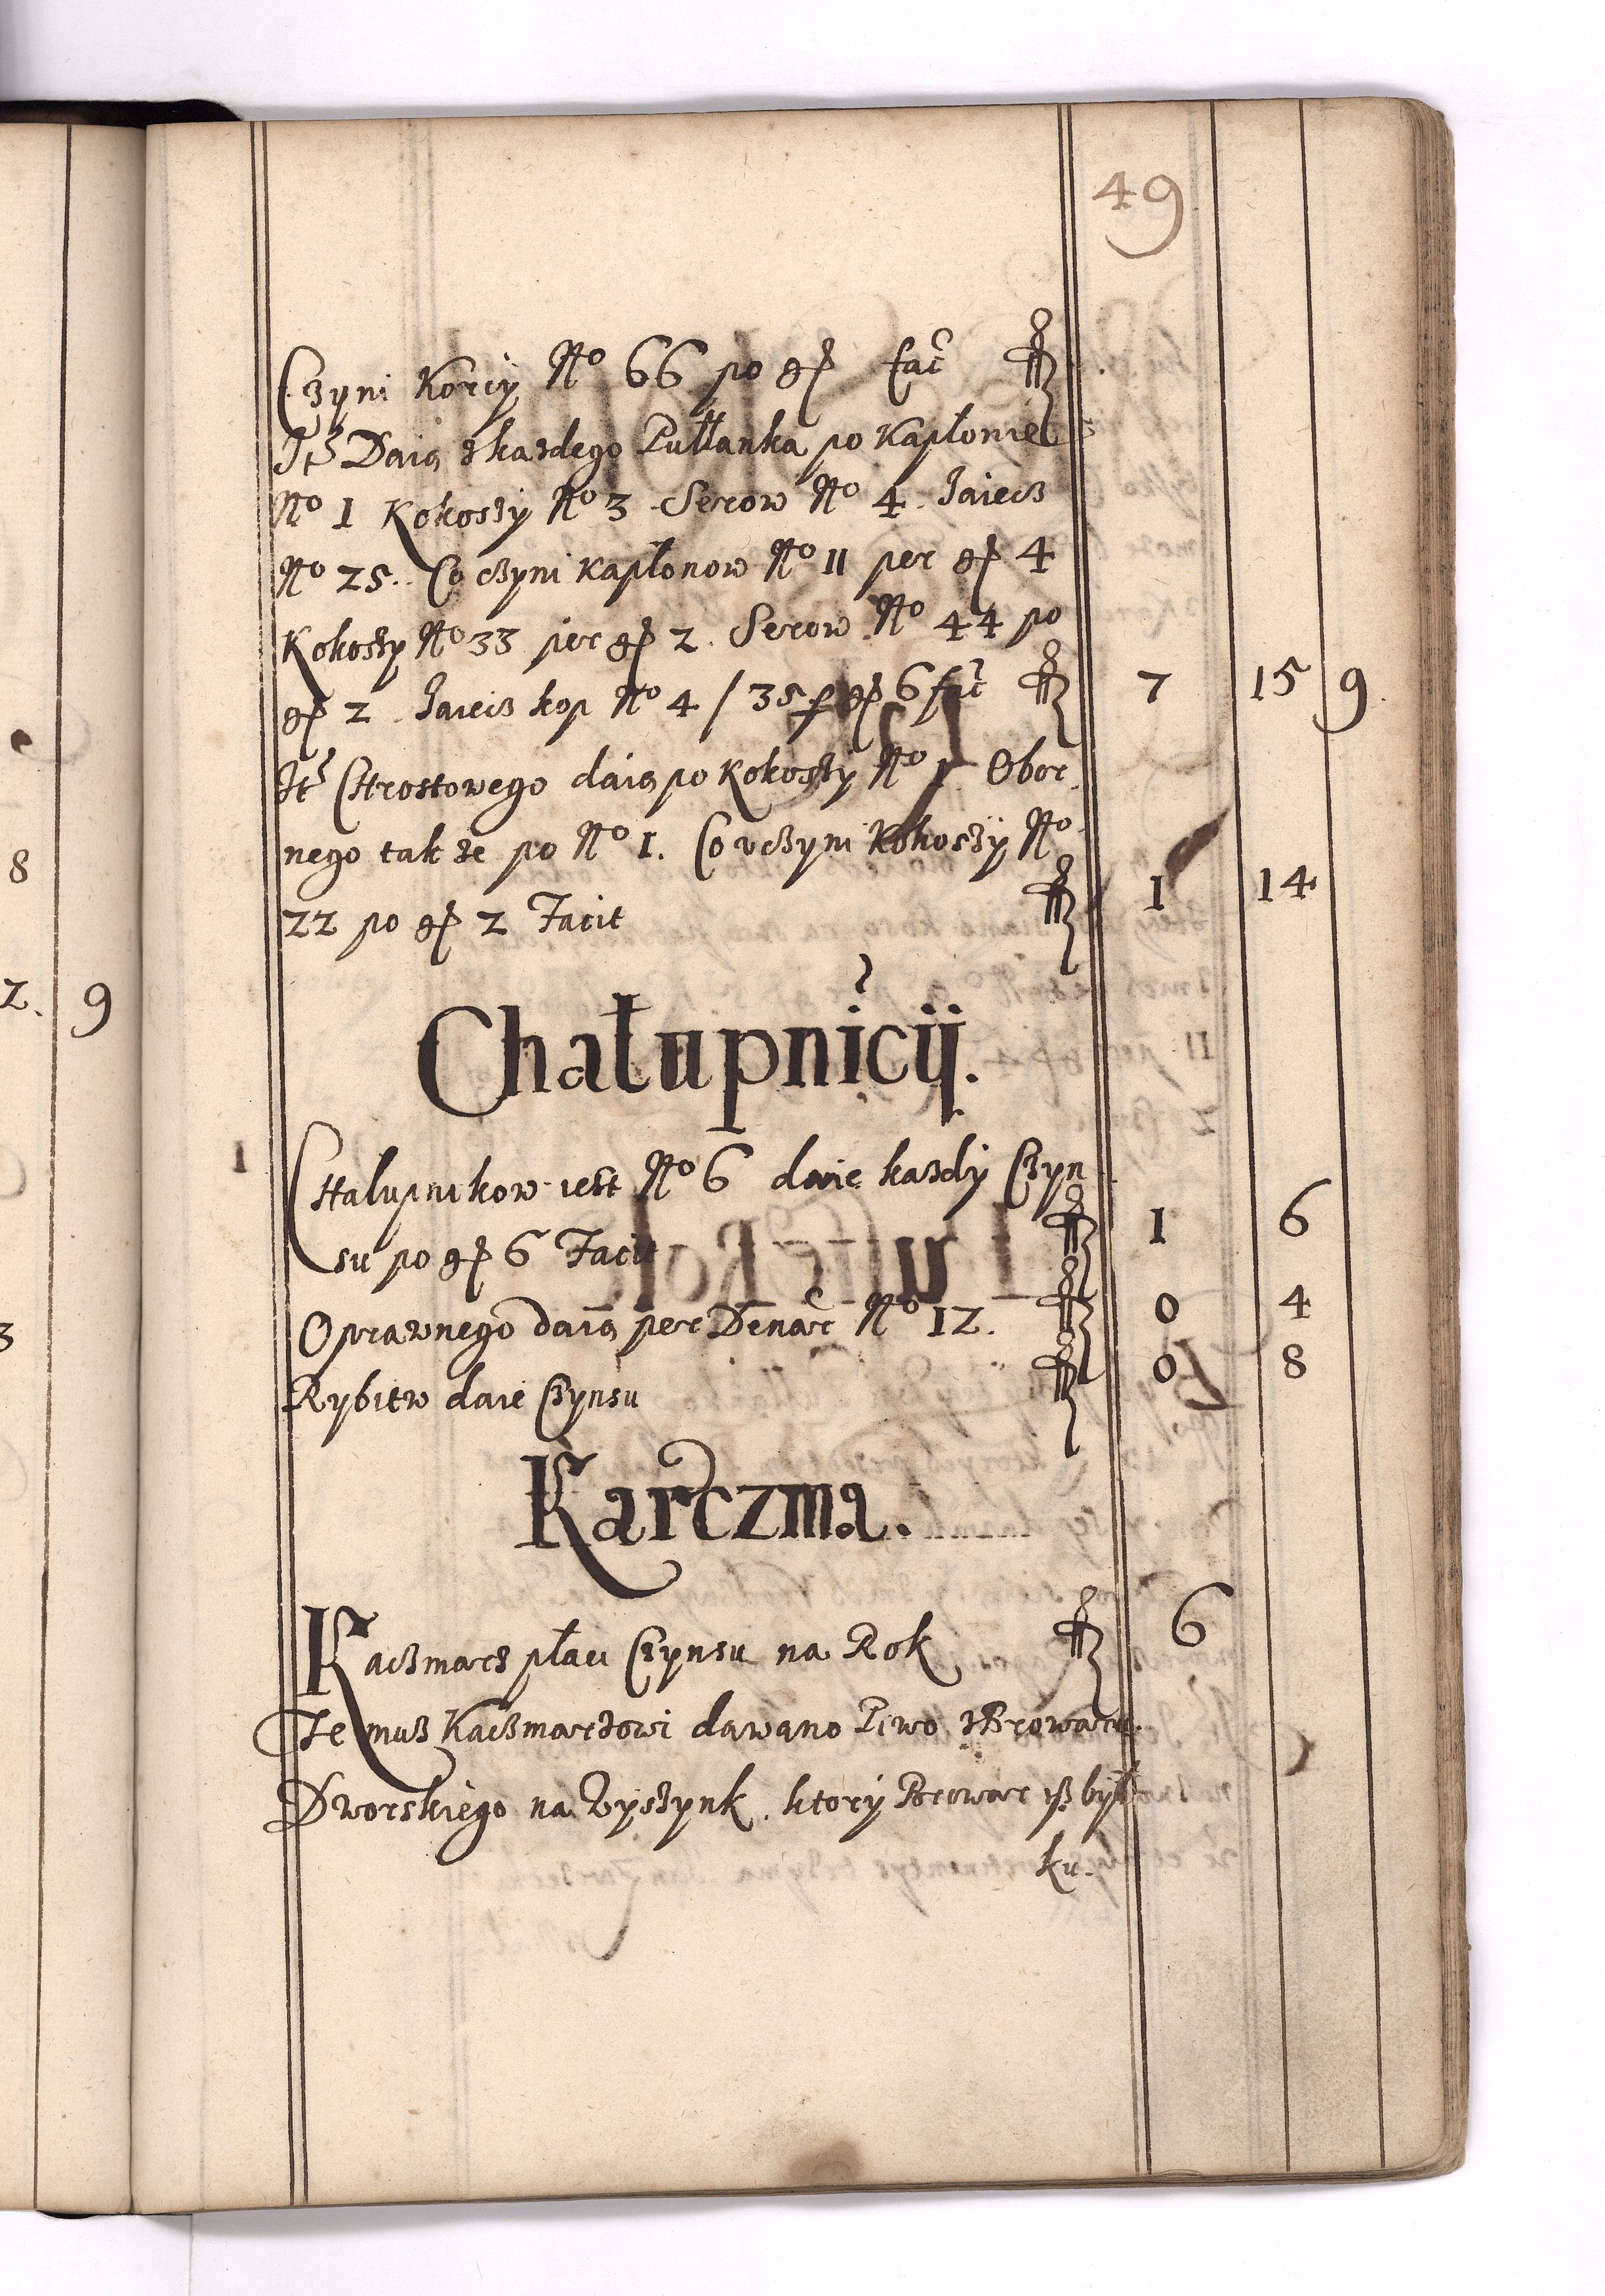 49
Czyni Korcy No 66 po gr fac fl
Itz Daią z kazdego Pułłanka po Kapłonie
No 1 Kokoszy No 3 Serow No 4. Jaiecz
No 25. Co czyni Kapłonow No 11 per gr 4
Kokoszy No 33 per gr 2. Serow No 44 po
gr 2. Jaiecz kop No 4 / 35 p gr 6 fac fl 7 15 9
Itz Strostowego daią po Kokoszy No 1 Obor
nego tak ze po No 1. Co uczyni Kokoszy No
22 po gr 2 Facit fl 1 14
Chałupnicy.
1 Chalupnikow iest No 6 daie kazdy Czyn
su po gr 6 Facit fl 1 6
Oprawnego daią per Denar No 12. fl 0 4
Rybitw daie Czynsu fl 0 8
Karczma.
Kaczmarz płaci Czynsu na Rok fl 6
Temusz Kaczmarzowi dawano Piwo z Browaru
Dworskiego na Wyszynk. ktory Browar isz był
ku.
8
2. 9
3